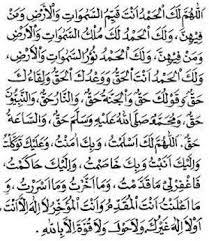 اَللّٰهُمَّ لَكَ الْحَمْدُ اَنْتَ قَيِّمُ السَّمٰوَاتِ وَالْاَرْضِ وَمَنْ
فِيْهِنَّ، وَلَكَ الْحَمْدُ لَكَ مُلْكُ السَّمٰوَاتِ وَالْاَرْضِ وَمَنْ
فِيْهِنَّ، وَلَكَ الْحَمْدُ نُوْرُ السَّمٰوَاتِ وَالْاَرْضِ،
وَلَكَ الْحَمْدُ اَنْتَ الْحَقُّ وَوَعْدُكَ الْحَقُّ وَلِقَاءُكَ
حَقٌّ وَقَوْلُكَ حَقٌّ، وَالْجَنَّةُ حَقٌّ، وَالنَّارُ حَقٌّ، وَالنَّبِيُّوْنَ
حَقٌّ، وَمُحَمَّدٌ صَلَّى اللهُ عَلَيْهِ وَسَلَّمَ حَقٌّ، وَالسَّاعَةُ
حَقٌّ. اَللّٰهُمَّ لَكَ اَسْلَمْتُ، وَبِكَ اٰمَنْتُ، وَعَلَيْكَ تَوَكَّلْتُ
وَاِلَيْكَ اَنَبْتُ وَبِكَ خَاصَمْتُ، وَاِلَيْكَ حَاكَمْتُ،
فَاغْفِرْلِيْ مَاقَدَّمْتُ، وَمَا اَخَّرْتُ وَمَا اَسْرَرْتُ، وَمَا
اَعْلَنْتُ اَنْتَ الْمُقَدِّمُ وَاَنْتَ الْمُؤَخِّرُ لَااِلٰهَ اِلَّا اَنْتَ
اَوْلَا اِلٰهَ غَيْرُكَ وَلَاحَوْلَ وَلَا قُوَّةَ اِلَّا بِاللهِ.